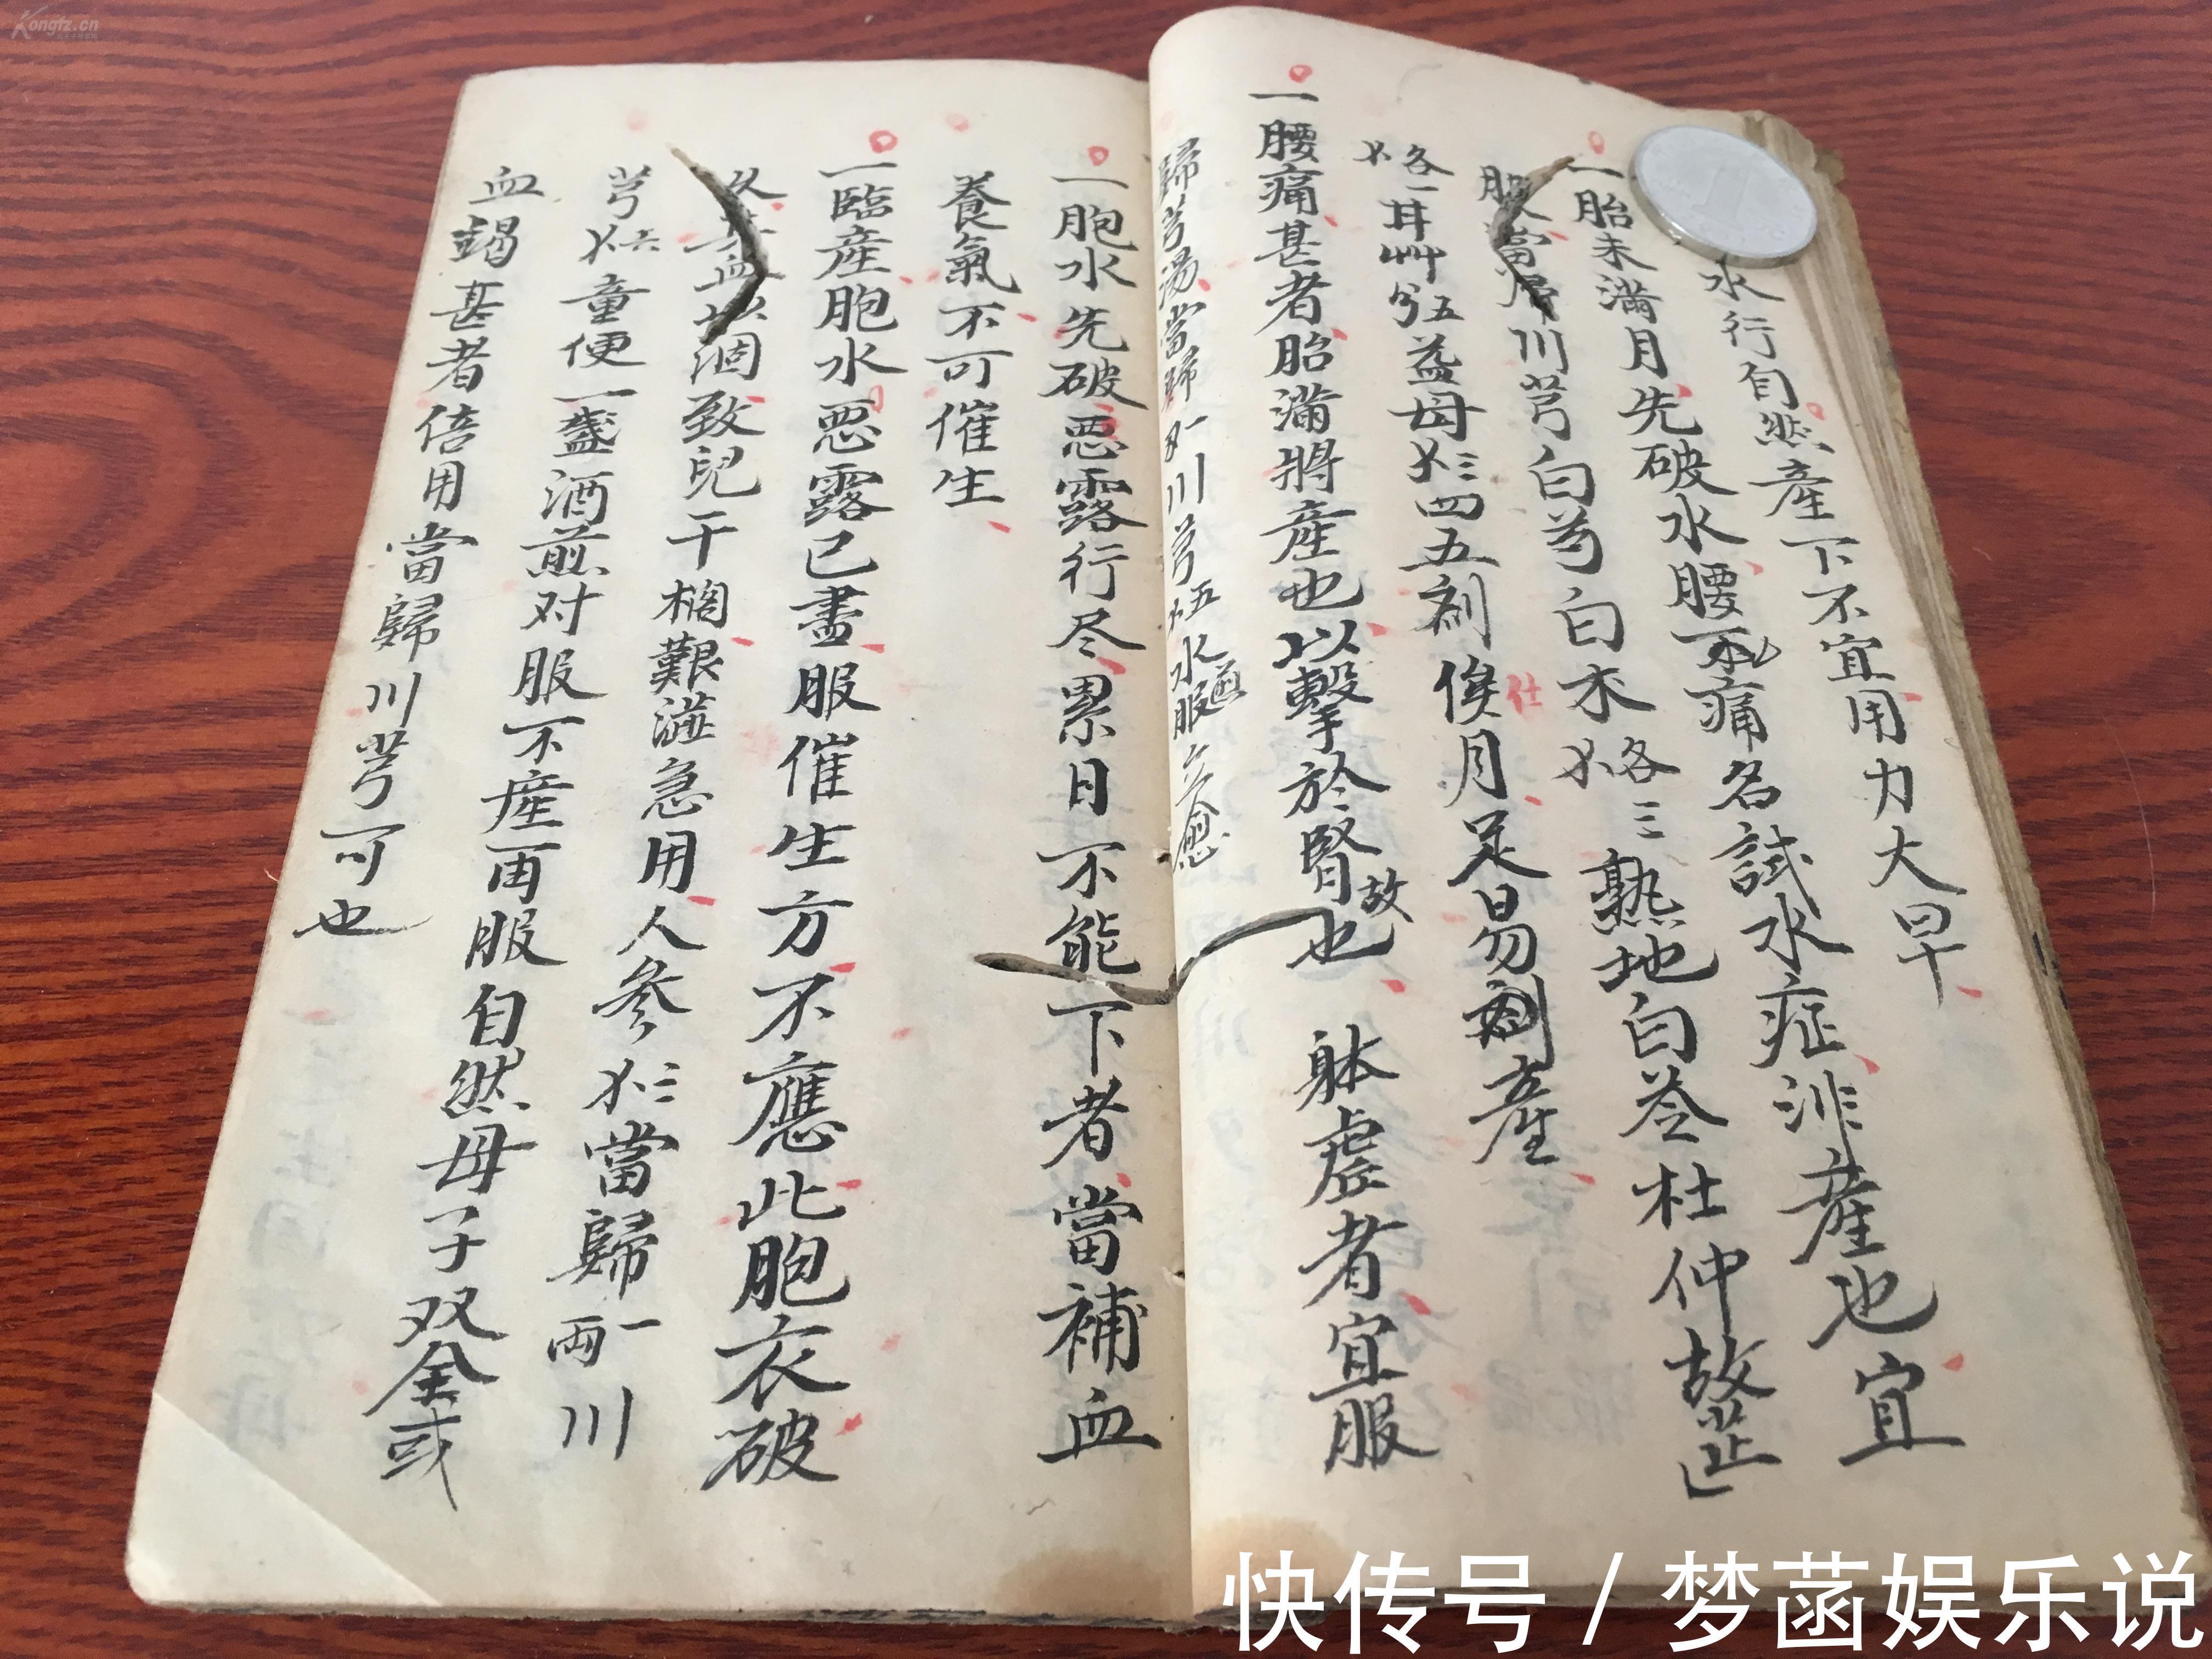 水行自然產下不宜用力大早
一胎未滿月先破水腰不痛名試水症非產也宜
服當歸川芎白芍白术各三熟地白苓杜仲故芷
各一甘艸五益母三四五剂俟月足易產
一腰痛甚者胎滿將產也以擊於腎故也 躰虛者宜服
歸芎湯當歸一川芎五水煎服立愈
一胞水先破惡露行尽累日不能下者當補血
養氣不可催生
一臨產胞水惡露已盡服催生方不應此胞衣破
久其血涸致兒干櫊艱澁急用人參三當歸一両川
芎六童便一盞酒煎对服不產再服自然母子双全或
血竭甚者倍用當歸川芎可也
Kongfz.cn
快传号/梦菡娱乐说